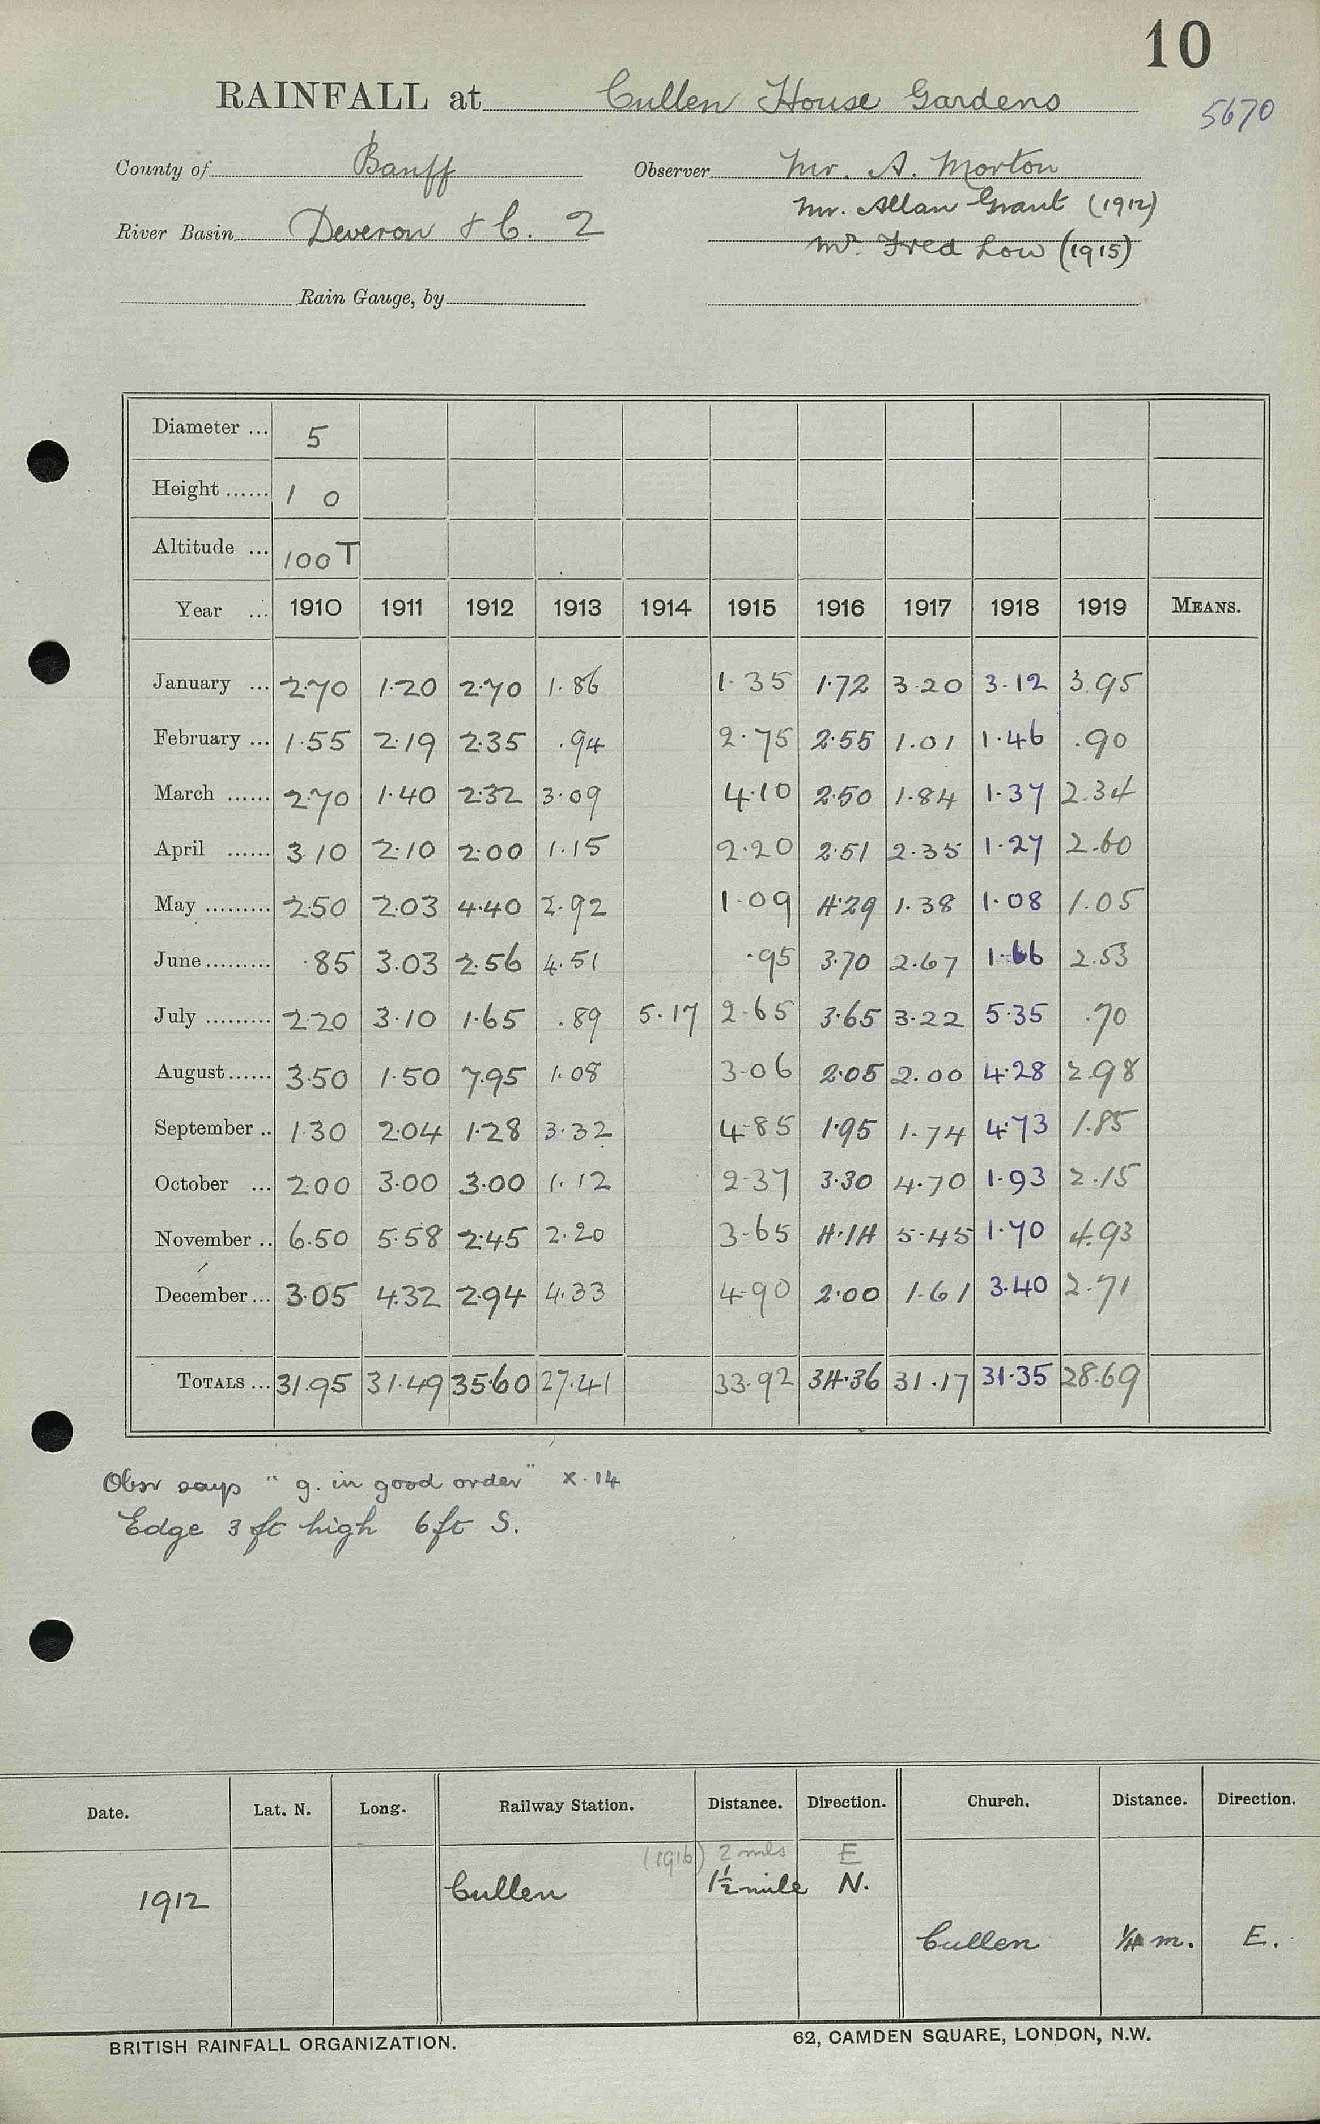 10
RAINFALL at Cullen House Gardens
5670
County of Banff Observer Mr. A. Morton
Mr. Allan Grant (1912)
River Basin Deveron & C. 2
Mr. Fred Low (1915)
Rain Gauge, by
Diameter ... 5
Height ...... 1 0
Altitude ... 100 T
Year ... 1910 1911 1912 1913 1914 1915 1916 1917 1918 1919 MEANS.
January ... 2.70 1.20 2.70 1.86 1.35 1.72 3.20 3.12 3.95
February ... 1.55 2.19 2.35 .94 2.75 2.55 1.01 1.46 .90
March ...... 2.70 1.40 2.32 3.09 4.10 2.50 1.84 1.37 2.34
April ...... 3.10 2.10 2.00 1.15 2.20 2.51 2.35 1.27 2.60
May ......... 2.50 2.03 4.40 2.92 1.09 4.29 1.38 1.08 1.05
June ......... .85 3.03 2.56 4.51 .95 3.70 2.67 1.66 2.53
July ......... 2.20 3.10 1.65 .89 5.17 2.65 3.65 3.22 5.35 .70
August ...... 3.50 1.50 7.95 1.08 3.06 2.05 2.00 4.28 2.98
September .. 1.30 2.04 1.28 3.32 4.85 1.95 1.74 4.73 1.85
October ... 2.00 3.00 3.00 1.12 2.37 3.30 4.70 1.93 2.15
November .. 6.50 5.58 2.45 2.20 3.65 4.14 5.45 1.70 4.93
December ... 3.05 4.32 2.94 4.33 4.90 2.00 1.61 3.40 2.71
TOTALS ... 31.95 31.49 35.60 27.41 33.92 34.36 31.17 31.35 28.69
Obsr says "g. in good order" X.14
Edge 3 ft high 6 ft S.
Date. Lat. N. Long. Railway Station. Distance. Direction. Church. Distance. Direction.
(1916) 2 mls E
1912 Cullen 1½ mile N.
Cullen ¼ m. E.
BRITISH RAINFALL ORGANIZATION. 62, CAMDEN SQUARE, LONDON, N.W.